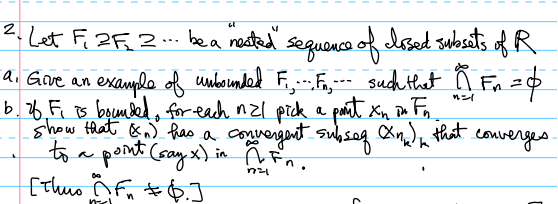 2. Let F₁ ⊇ F₂ ⊇ ... be a "nested" sequence of closed subsets of ℝ
a. Give an example of unbounded F₁,...,Fₙ,... such that ∞⋂n=1 Fₙ = ϕ
b. If F₁ is bounded, for each n≥1 pick a point xₙ in Fₙ.
Show that (xₙ) has a convergent subseq (xₙₖ)ₖ that converges
to a point (say x) in ∞⋂n=1 Fₙ.
[Thus ∞⋂n=1 Fₙ ≠ ϕ.]